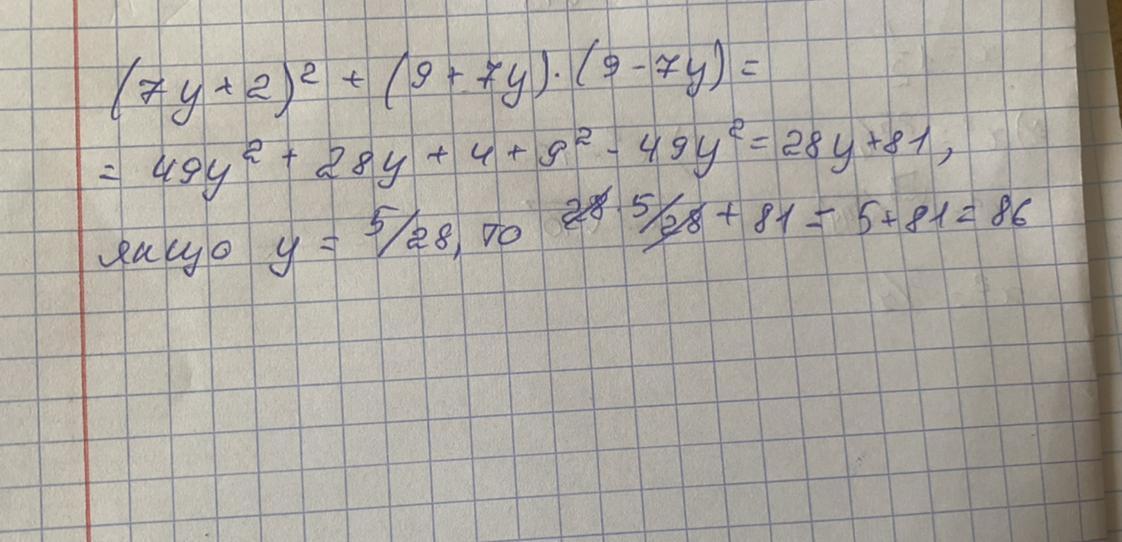 (7y+2)² + (9+7y)·(9-7y) =
= 49y² + 28y + 4 + 9² - 49y² = 28y+81,
якщо y = 5/28, то 28·5/28 + 81 = 5+81 = 86